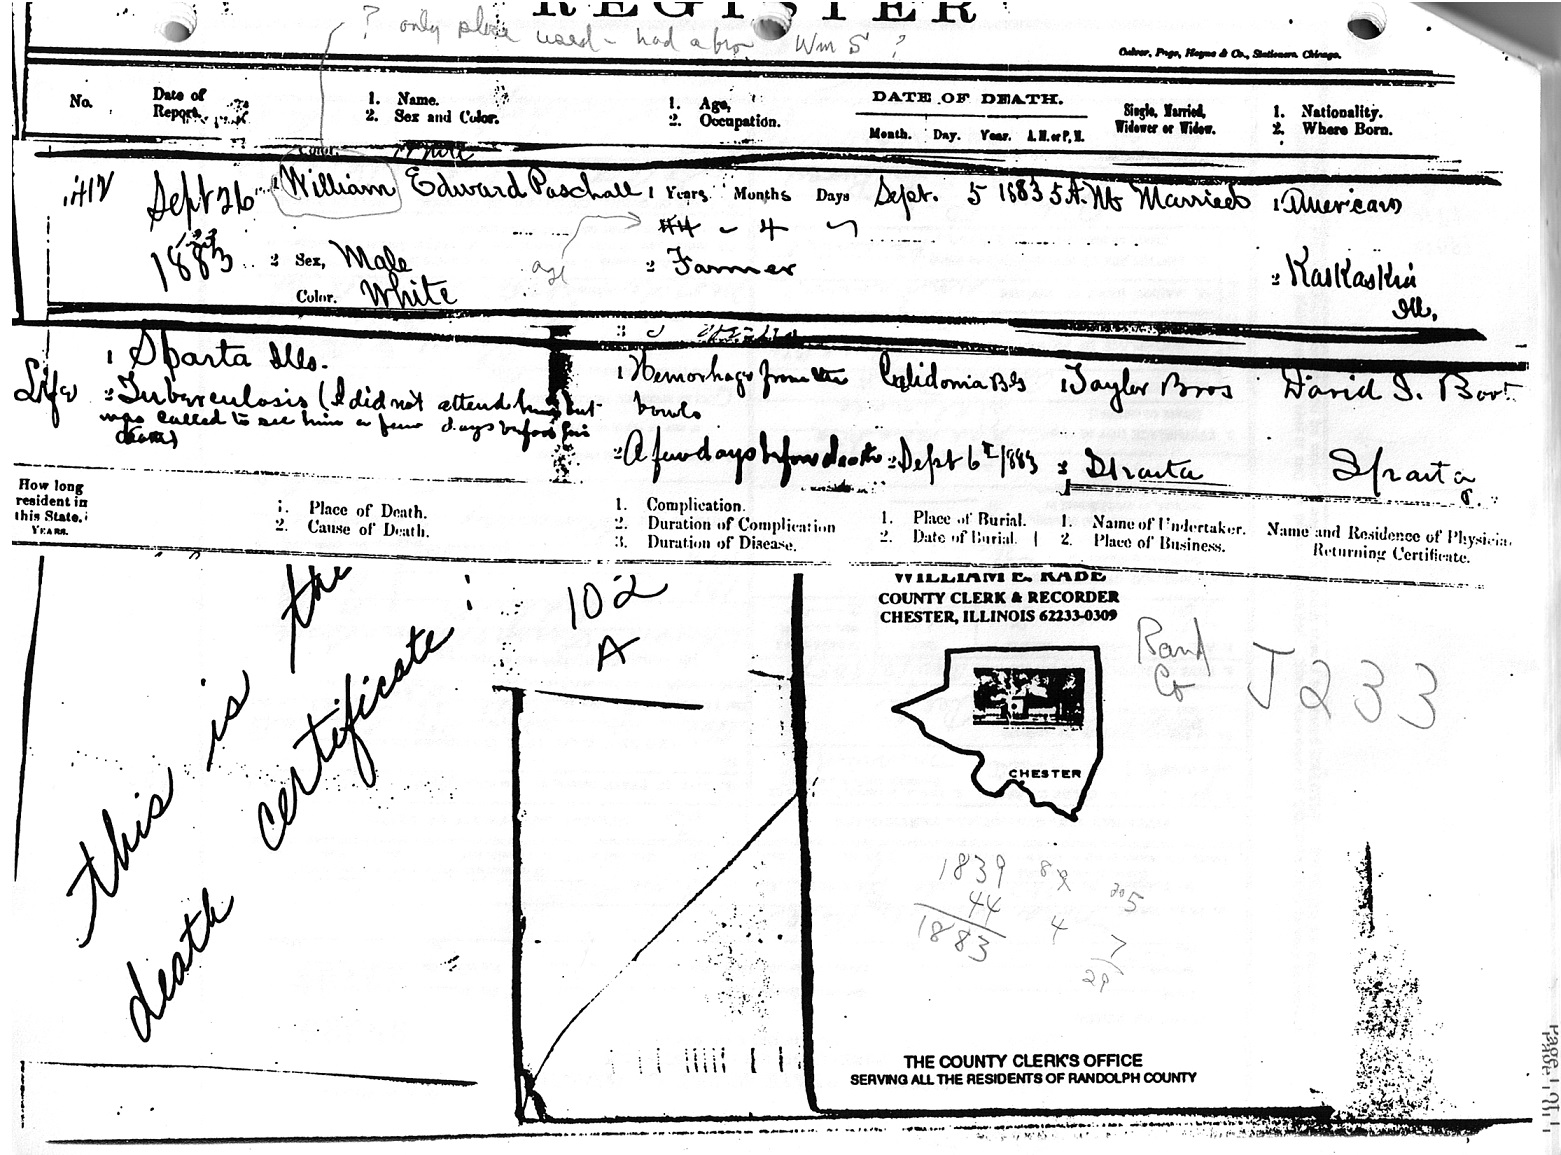 REGISTER
? only place used - had a bro Wm S ?
Culver, Page, Hoyne & Co., Stationers, Chicago.
No.
Date of Report.
1. Name.
2. Sex and Color.
1. Age,
2. Occupation.
DATE OF DEATH.
Month. Day. Year. A.M. or P.M.
Single, Married, Widower or Widow.
1. Nationality.
2. Where Born.
Color. White
412 Sept 26 1 William Edward Paschall 1 Years Months Days Sept. 5 1883 5 A.M. Married 1 American
44 4
1883 2 Sex, Male age 2 Farmer 2 Kaskaskia
Color. White Ill.
3
Life 1 Sparta Ills. 1 Hemorhage from the Calidonia 1 Taylor Bros David S. Boo
2 Tuberculosis (I did not attend him but bowls
was called to see him a few days before his
death)
2 A few days before death 2 Sept 6 1883 2 Sparta Sparta
How long
resident in
this State.
YEARS.
1. Place of Death.
2. Cause of Death.
1. Complication.
2. Duration of Complication
3. Duration of Disease.
1. Place of Burial.
2. Date of Burial.
1. Name of Undertaker.
2. Place of Business.
Name and Residence of Physicia
Returning Certificate.
this is the
death certificate:
102
A
WILLIAM E. RABE
COUNTY CLERK & RECORDER
CHESTER, ILLINOIS 62233-0309
Rand
Co
J233
CHESTER
1839 8
44 4
1883
5
7
THE COUNTY CLERK'S OFFICE
SERVING ALL THE RESIDENTS OF RANDOLPH COUNTY